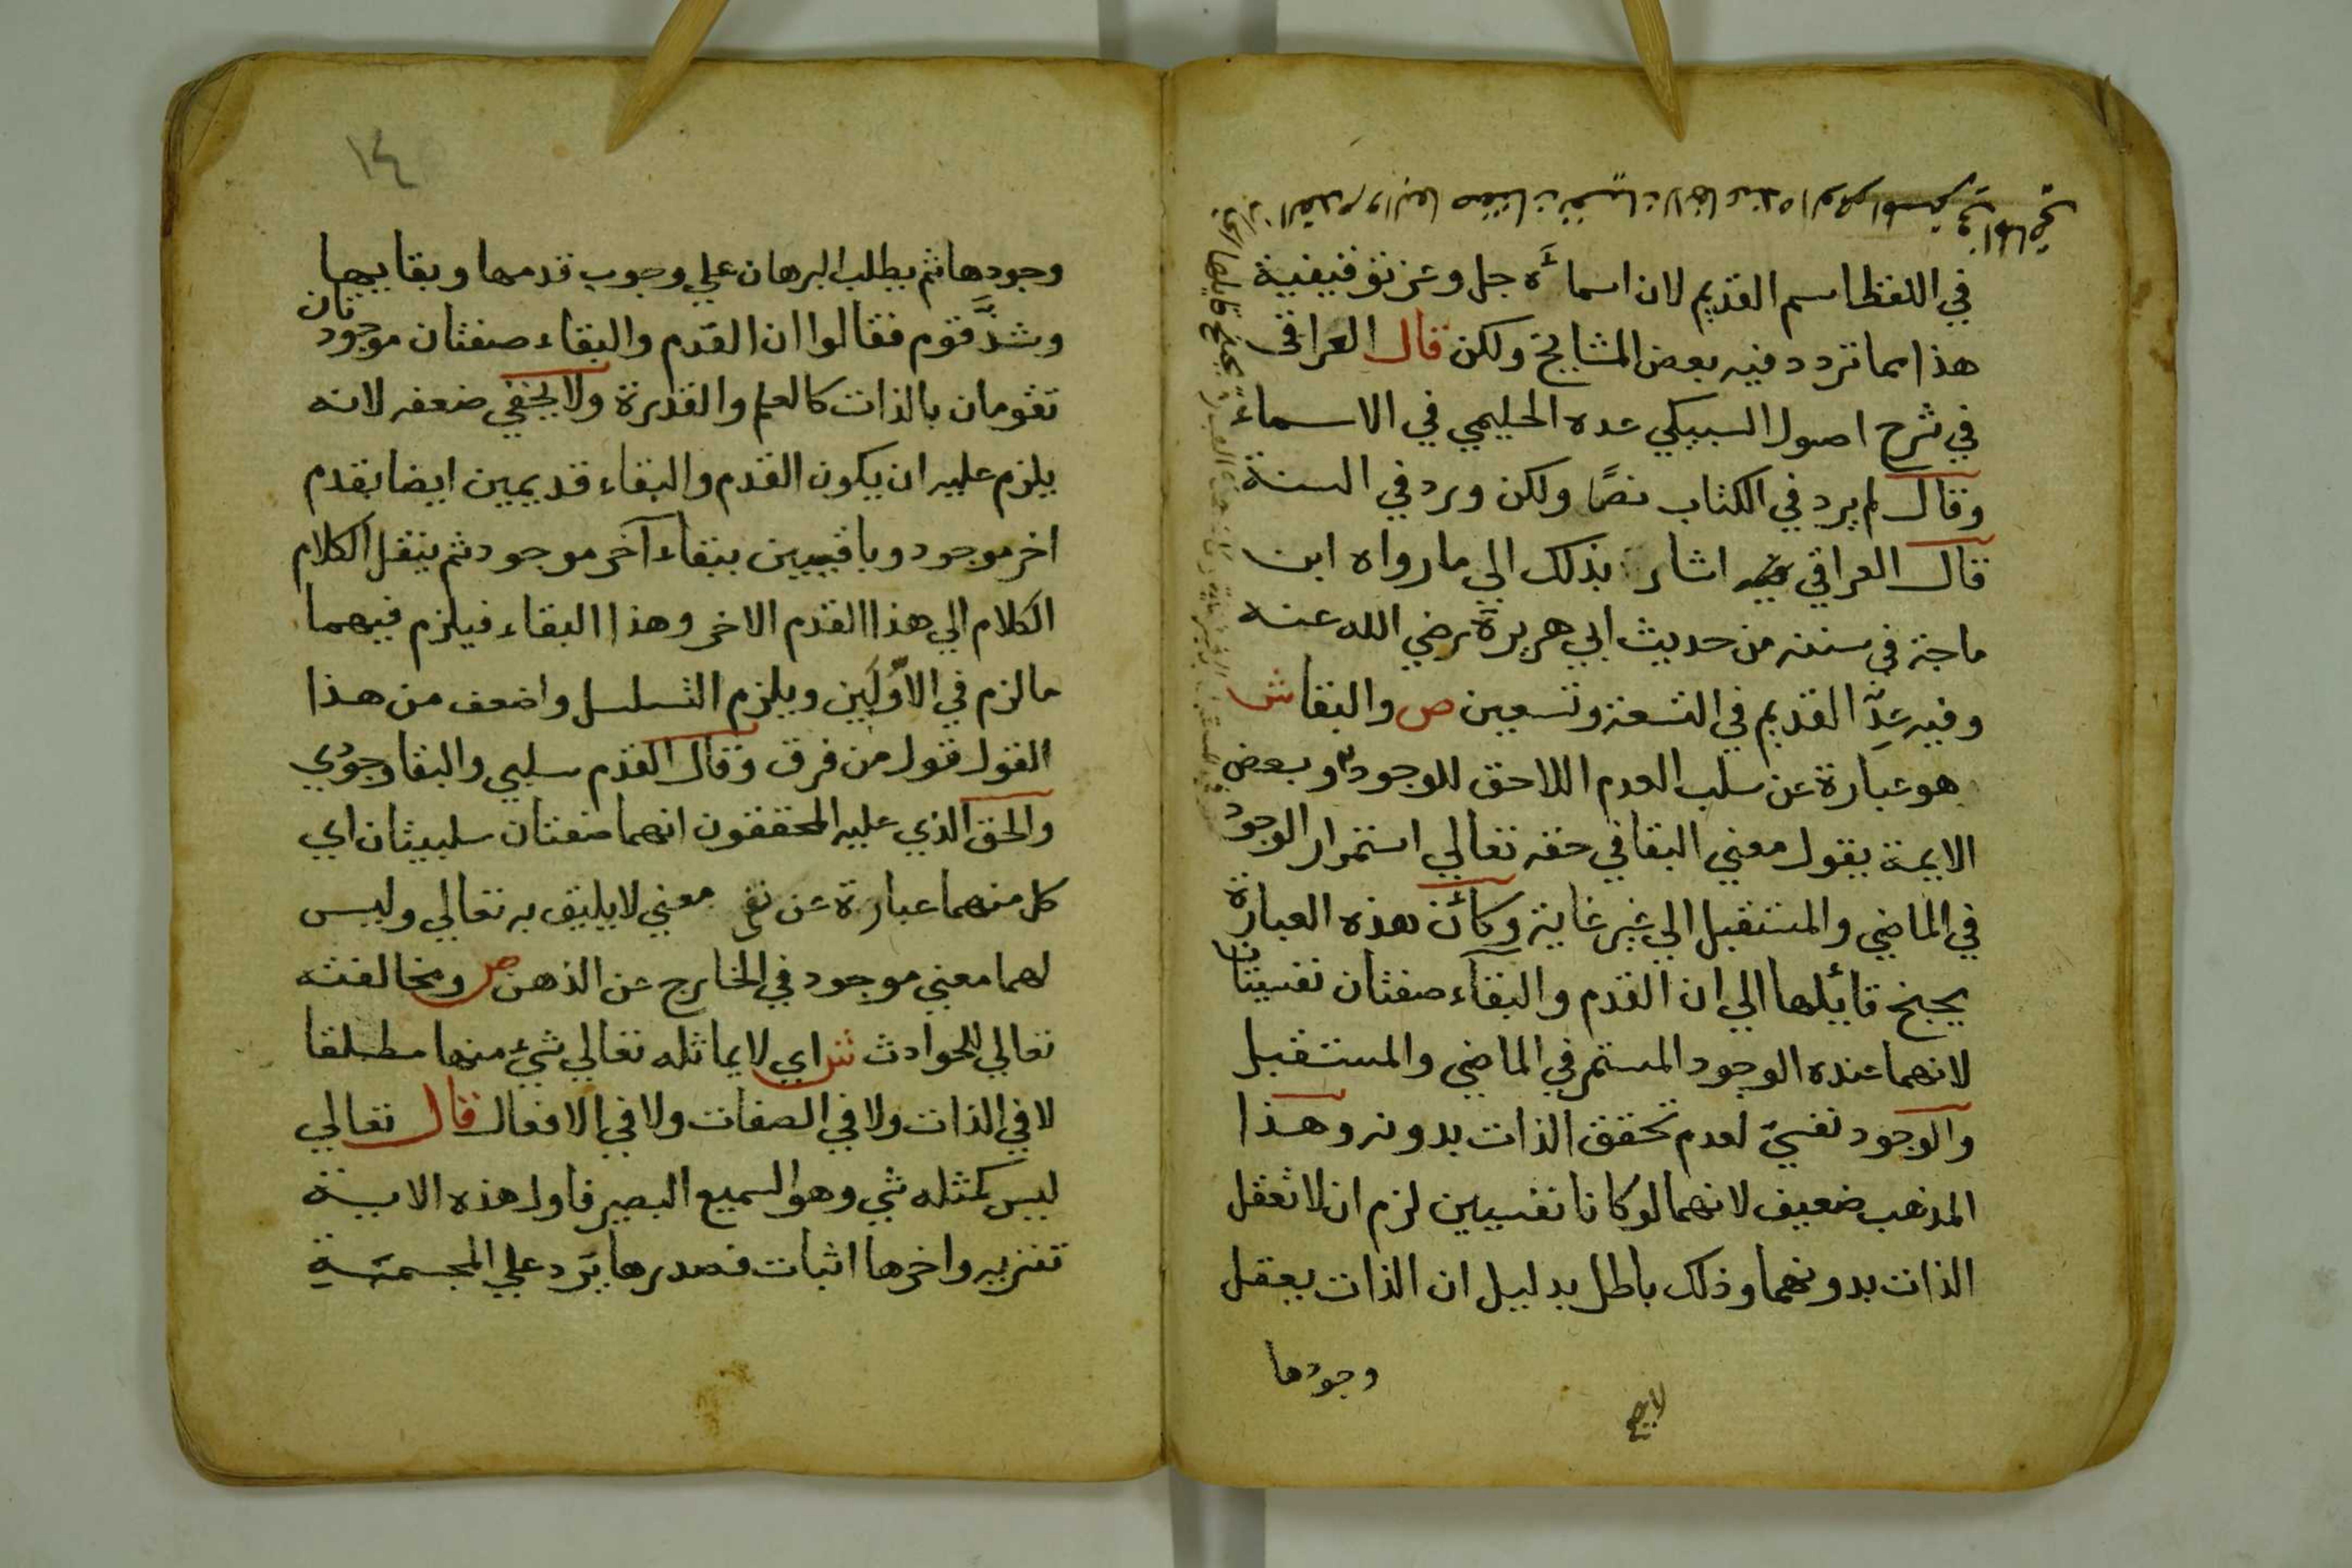 في اللفظ اسم القديم لان اسمائه جل وعز توقيفية
هذا مما تردد فيه بعض المشايخ ولكن قال العراقي
في شرح اصول السبكي عده الحليمي في الاسماء
وقال لم يرد في الكتاب نصًا ولكن ورد في السنة
قال العراقي اشار بذلك الي ما رواه ابن
ماجة في سننه من حديث ابي هريرة رضي الله عنه
وفيه عدّ القديم في التسعة وتسعين ص والبقا ش
هو عبارة عن سلب العدم اللاحق للوجود وبعض
الايمة يقول معني البقا في حقه تعالي استمرار الوجود
في الماضي والمستقبل الي غير غاية وكأن هذه العبارة
يجنح قائيلها الي ان القدم والبقاء صفتان نفسيتان
لانهما عنده الوجود المستمر في الماضي والمستقبل
والوجود نفسيّ لعدم تحقق الذات بدونه وهذا
المذهب ضعيف لانهما لو كانا نفسيين لزم ان لا تعقل
الذات بدونهما وذلك باطل بدليل ان الذات يعقل
وجودها
١٤
وجودها ثم يطلب البرهان علي وجوب قدمها وبقايها
وشذَّ قوم فقالوا ان القدم والبقاء صفتان موجودتان
تقومان بالذات كالعلم والقدرة ولا يخفي ضعفه لانه
يلزم عليه ان يكون القدم والبقاء قديمين ايضا بقدم
اخر موجود وباقيين ببقاء آخر موجود ثم ينقل الكلام
الكلام الي هذا القدم الاخر وهذا البقاء فيلزم فيهما
ما لزم في الاوّلَين ويلزم التسلسل واضعف من هذا
القول قول من فرق وقال القدم سلبي والبقا وجودي
والحق الذي عليه المحققون انهما صفتان سلبيتان اي
كل منهما عبارة عن نفي معني لا يليق به تعالي وليس
لهما معني موجود في الخارج عن الذهن ص ومخالفته
تعالي للحوادث ش اي لا يماثله تعالي شيء منها مطلقا
لا في الذات ولا في الصفات ولا في الافعال قال تعالي
ليس كمثله شي وهو السميع البصير فاول هذه الاية
تنزيه واخرها اثبات فصدرها يَرد علي المجسمَة